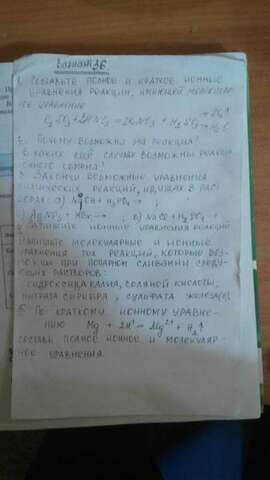 Вариант 36.
1. Составьте полное и краткое ионные
уравнения реакции, имеющей молекуляр-
ное уравнение
K2SO3 + 2HNO3 = 2KNO3 + H2O + SO2↑
2. Почему возможна эта реакция?
В каких ещё случаях возможны реакции
ионного обмена?
3. Закончи возможные уравнения
химических реакций, идущих в раст-
ворах: а) NaOH + H3PO4 → ;
б) AgNO3 + HBr → ; в) NaCl + H2SO4 →
Запишите ионные уравнения реакций
Напишите молекулярные и ионные
уравнения тех реакций, которые воз-
можны при попарном сливании следу-
ющих растворов:
гидроксида калия, соляной кислоты,
нитрата серебра, сульфата железа
5. По краткому ионному уравне-
нию Mg + 2H+ → Mg2+ + H2↑
составь полное ионное и молекуляр-
ное уравнения.